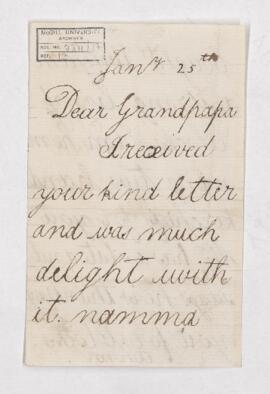 McGILL UNIVERSITY
ARCHIVES
ACC. NO.
REF.
Jany 25th
Dear Grandpapa
I received
your kind letter
and was much
delight with
it. namma